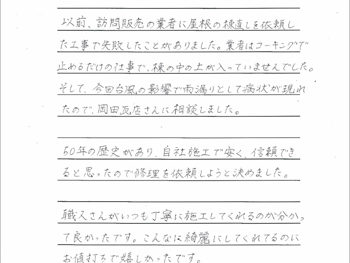 以前、訪問販売の業者に屋根の棟直しを依頼し
た工事で失敗したことがありました。業者はコーキングで
止めるだけの仕事で、棟の中の土が入っていませんでした。
そして、今回台風の影響で雨漏りとして症状が現れ
たので、岡田瓦店さんに相談しました。
50年の歴史があり、自社施工で安く、信頼でき
ると思ったので修理を依頼しようと決めました。
職人さんがいつも丁寧に施工してくれるのが分かっ
て良かったです。こんなに綺麗にしてくれてるのに
お値打ちで嬉しかったです。